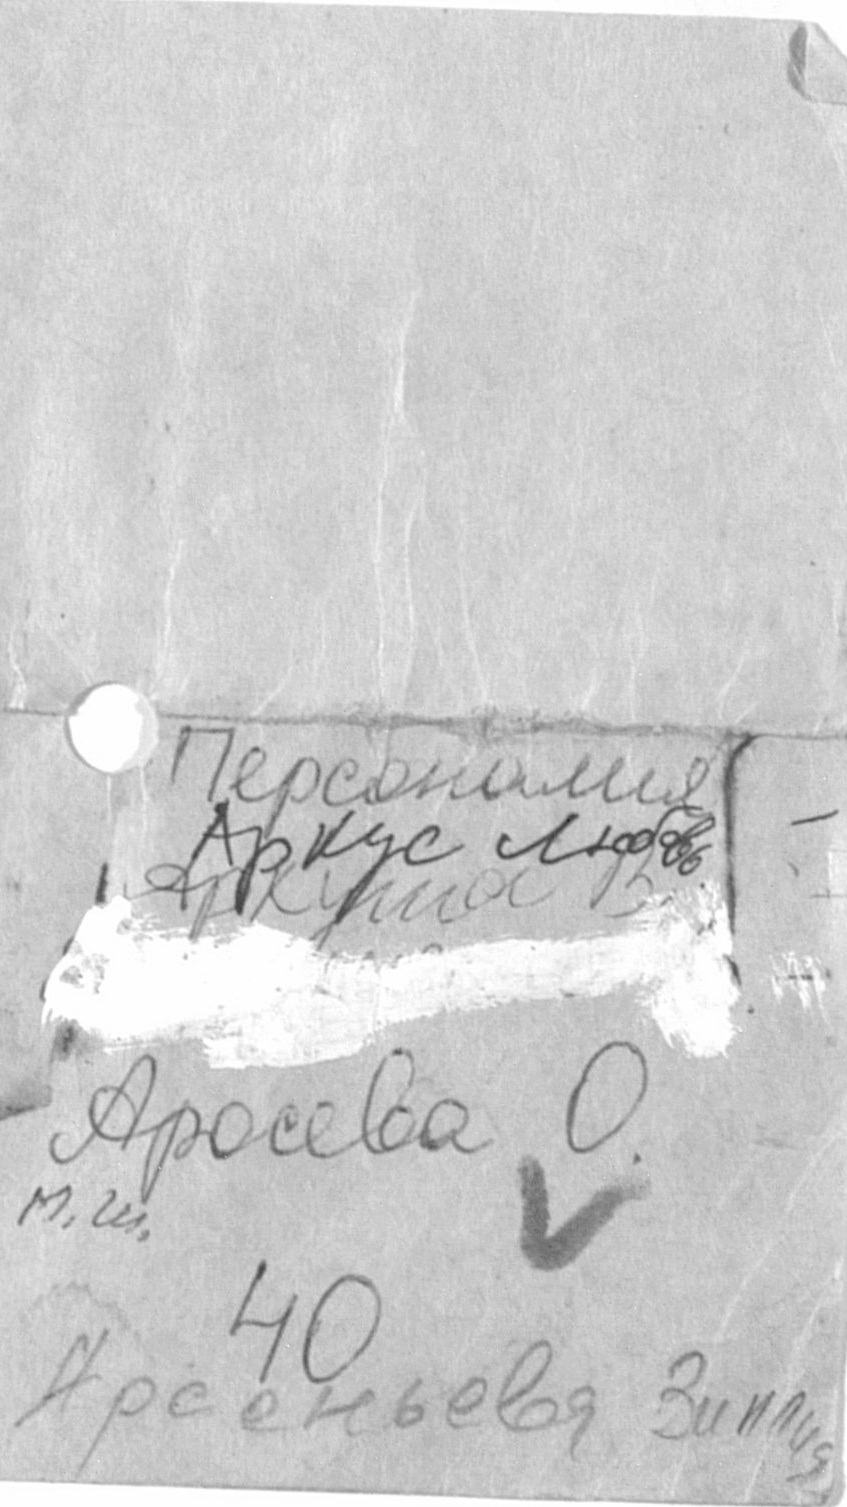 Персоналия
Аркус Любовь
Аркунас В
Аросева О.
м.ш.
40
Арсеньева